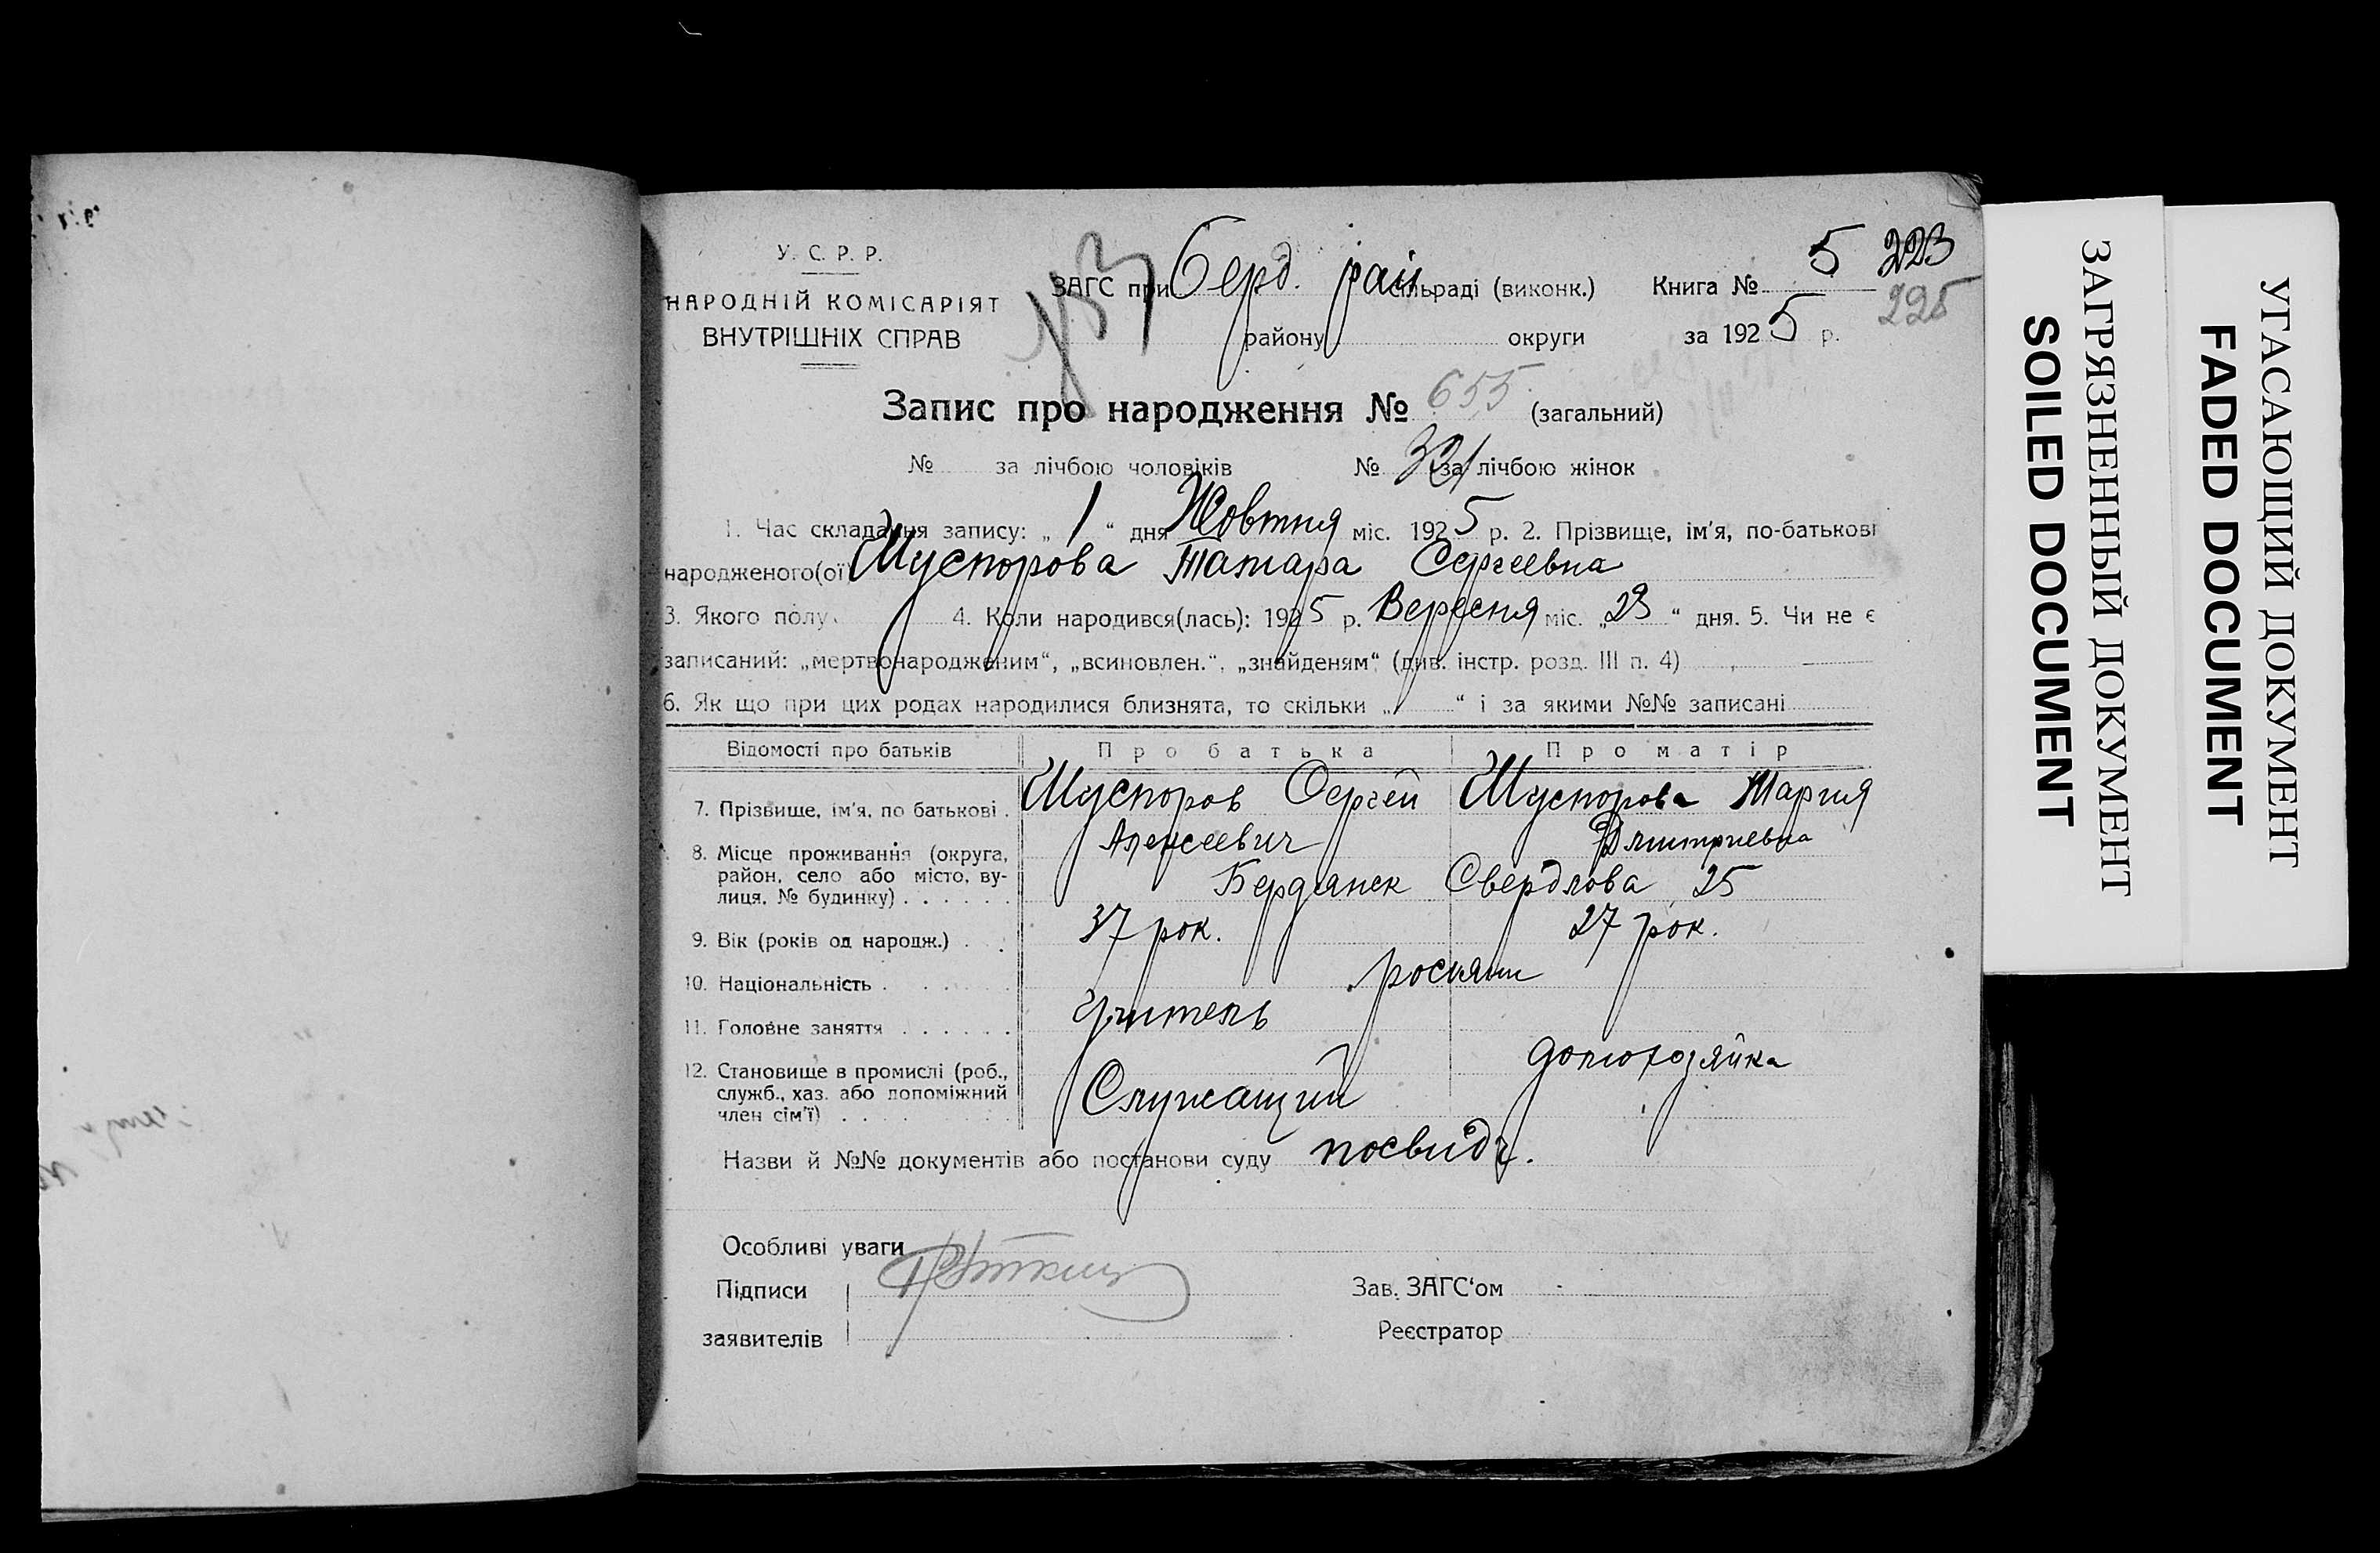 У. С. Р. Р.
НАРОДНІЙ КОМІСАРІЯТ
ВНУТРІШНІХ СПРАВ
ЗАГС при Берд. рай сільраді (виконк.) Книга № 5 223
225
району округи за 1925 р.
Запис про народження № 655 (загальний)
№ за лічбою чоловіків № 321 за лічбою жінок
1. Час складання запису: „1“ дня Жовтня міс. 1925 р. 2. Прізвище, ім'я, по-батькові
народженого(ої) Шуспорова Тамара Сергеевна
3. Якого полу 4. Коли народився(лась): 1925 р. Вересня міс. „23“ дня. 5. Чи не є
записаний: „мертвонародженим“, „всиновлен.“, „знайденям“ (див. інстр. розд. III п. 4)
6. Як що при цих родах народилися близнята, то скільки „ “ і за якими №№ записані
Відомості про батьків Про батька Про матір
7. Прізвище, ім'я, по батькові . Шуспоров Сергей Алексеевич Шуспорова Мария Дмитриевна
8. Місце проживання (округа,
район, село або місто, ву-
лиця, № будинку) . . . . . . Бердянск Свердлова 25
9. Вік (років од народж.) . . 37 рок. 27 рок.
10. Національність . . . . . росияни
11. Головне заняття . . . . . . Учитель
домохозяйка
12. Становище в промислі (роб.,
служб., хаз. або допоміжний
член сім'ї) . . . Служащий
Назви й №№ документів або постанови суду посвидч.
Особливі уваги
Підписи Зав. ЗАГС'ом
заявителів Реєстратор
ЗАГРЯЗНЕННЫЙ ДОКУМЕНТ
SOILED DOCUMENT
УГАСАЮЩИЙ ДОКУМЕНТ
FADED DOCUMENT